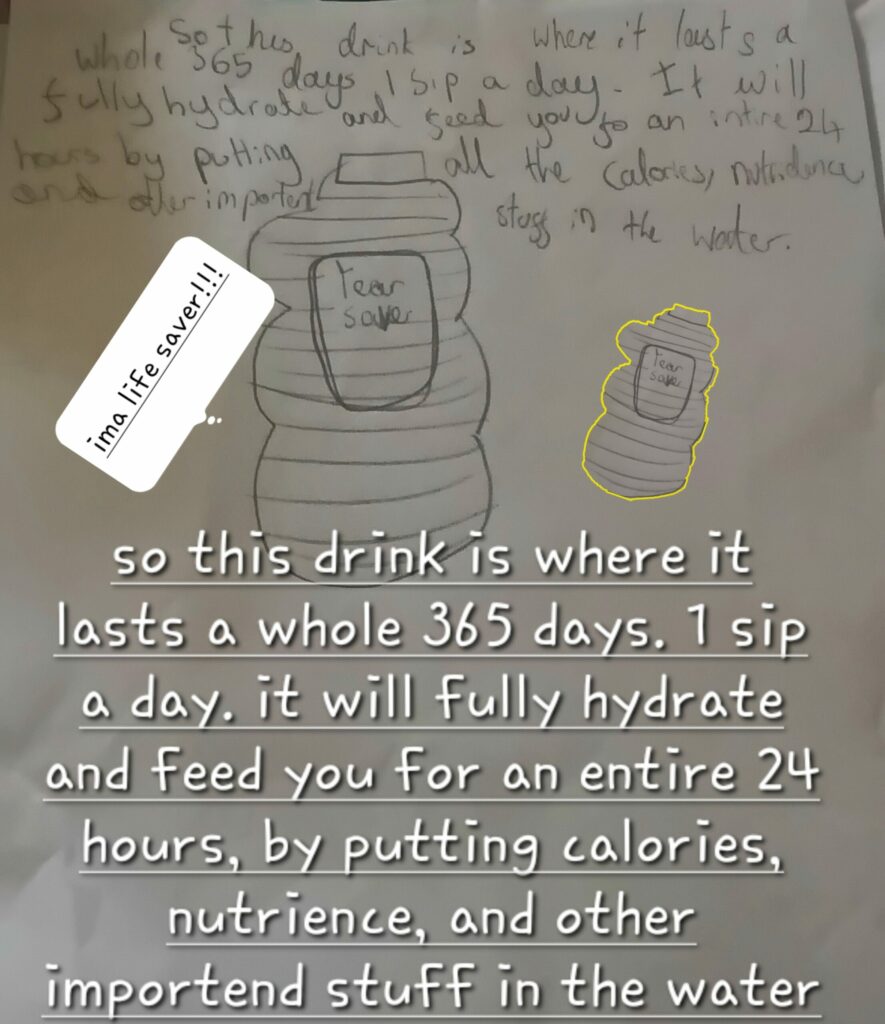 So thes drink is where it lasts a
whole 365 days 1 sip a day. It will
fully hydrate and feed you fo an intire 24
hours by putting all the calories, nutridence
and other importent stuff in the water.
Year
saver
ima life saver!!!
Year
saver
so this drink is where it
lasts a whole 365 days. 1 sip
a day. it will fully hydrate
and feed you for an entire 24
hours, by putting calories,
nutrience, and other
importend stuff in the water